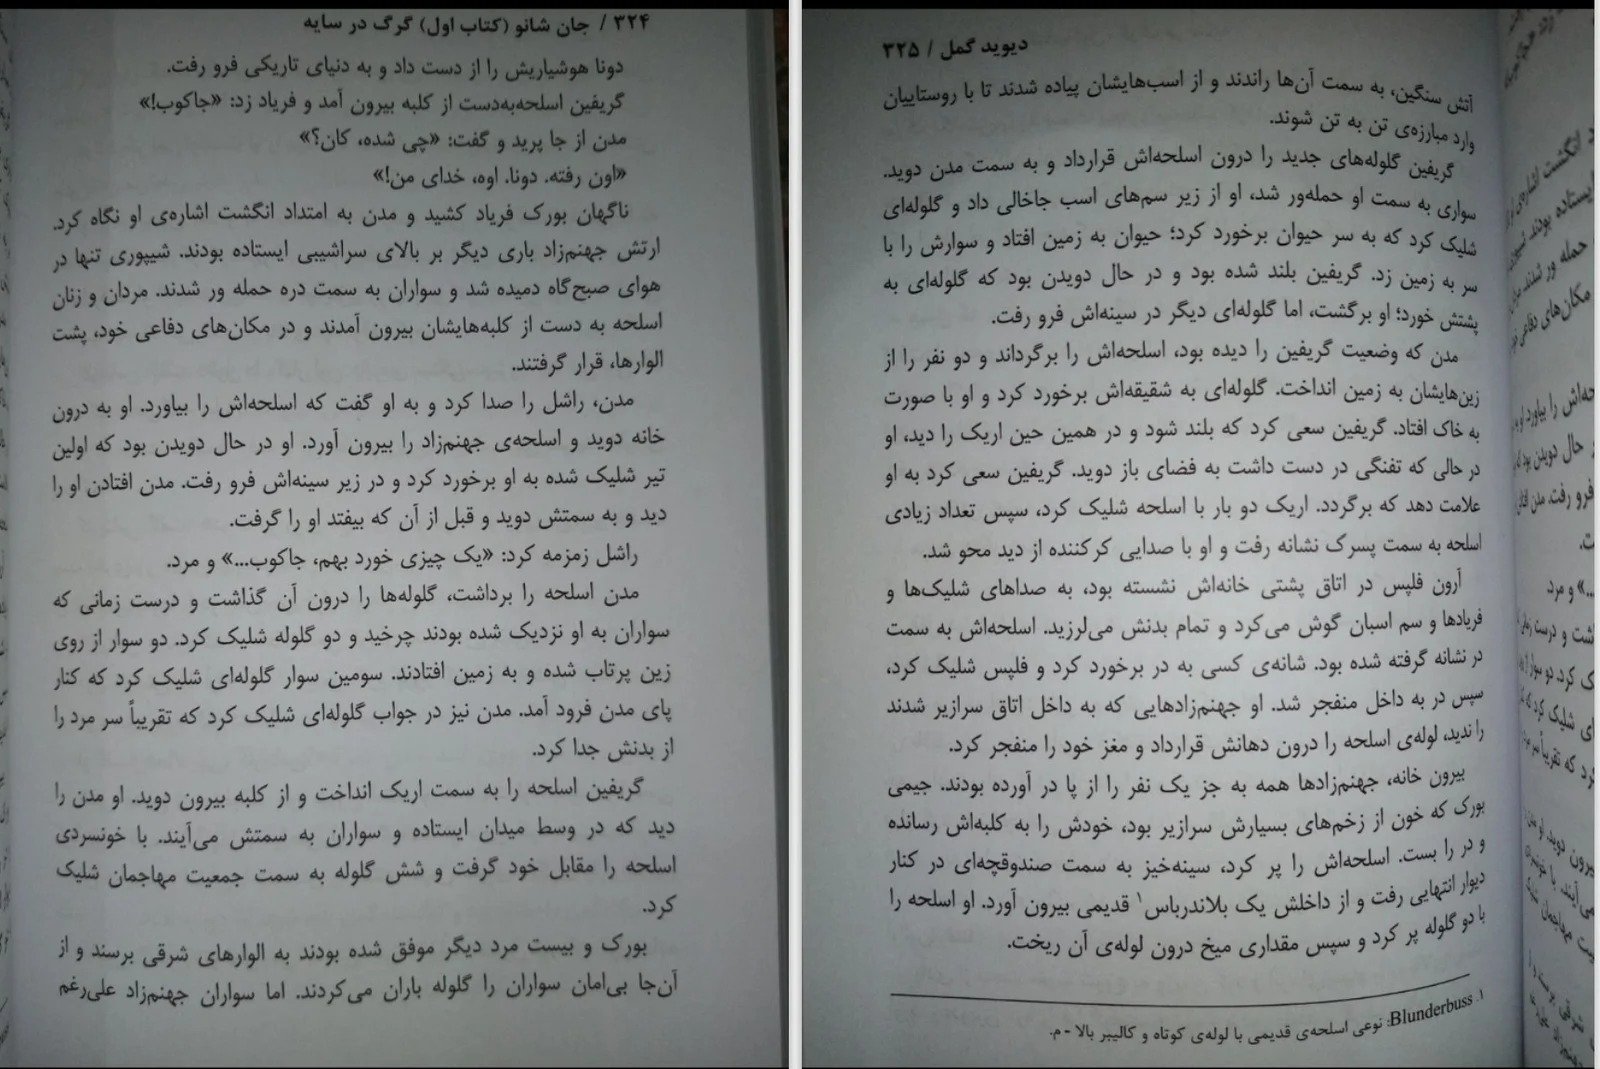 ۳۲۴ / جان شانو (کتاب اول) گرگ در سایه
دونا هوشیاریش را از دست داد و به دنیای تاریکی فرو رفت.
گریفین اسلحه‌به‌دست از کلبه بیرون آمد و فریاد زد: «جاکوب!»
مدن از جا پرید و گفت: «چی شده، کان؟»
«اون رفته. دونا. اوه، خدای من!»
ناگهان بورک فریاد کشید و مدن به امتداد انگشت اشاره‌ی او نگاه کرد.
ارتش جهنم‌زاد باری دیگر بر بالای سراشیبی ایستاده بودند. شیپوری تنها در
هوای صبح‌گاه دمیده شد و سواران به سمت دره حمله ور شدند. مردان و زنان
اسلحه به دست از کلبه‌هایشان بیرون آمدند و در مکان‌های دفاعی خود، پشت
الوارها، قرار گرفتند.
مدن، راشل را صدا کرد و به او گفت که اسلحه‌اش را بیاورد. او به درون
خانه دوید و اسلحه‌ی جهنم‌زاد را بیرون آورد. او در حال دویدن بود که اولین
تیر شلیک شده به او برخورد کرد و در زیر سینه‌اش فرو رفت. مدن افتادن او را
دید و به سمتش دوید و قبل از آن که بیفتد او را گرفت.
راشل زمزمه کرد: «یک چیزی خورد بهم، جاکوب...» و مرد.
مدن اسلحه را برداشت، گلوله‌ها را درون آن گذاشت و درست زمانی که
سواران به او نزدیک شده بودند چرخید و دو گلوله شلیک کرد. دو سوار از روی
زین پرتاب شده و به زمین افتادند. سومین سوار گلوله‌ای شلیک کرد که کنار
پای مدن فرود آمد. مدن نیز در جواب گلوله‌ای شلیک کرد که تقریباً سر مرد را
از بدنش جدا کرد.
گریفین اسلحه را به سمت اریک انداخت و از کلبه بیرون دوید. او مدن را
دید که در وسط میدان ایستاده و سواران به سمتش می‌آیند. با خونسردی
اسلحه را مقابل خود گرفت و شش گلوله به سمت جمعیت مهاجمان شلیک
کرد.
بورک و بیست مرد دیگر موفق شده بودند به الوارهای شرقی برسند و از
آن‌جا بی‌امان سواران را گلوله باران می‌کردند. اما سواران جهنم‌زاد علی‌رغم
دیوید گمل / ۳۲۵
آتش سنگین، به سمت آن‌ها راندند و از اسب‌هایشان پیاده شدند تا با روستاییان
وارد مبارزه‌ی تن به تن شوند.
گریفین گلوله‌های جدید را درون اسلحه‌اش قرارداد و به سمت مدن دوید.
سواری به سمت او حمله‌ور شد، او از زیر سم‌های اسب جاخالی داد و گلوله‌ای
شلیک کرد که به سر حیوان برخورد کرد؛ حیوان به زمین افتاد و سوارش را با
سر به زمین زد. گریفین بلند شده بود و در حال دویدن بود که گلوله‌ای به
پشتش خورد؛ او برگشت، اما گلوله‌ای دیگر در سینه‌اش فرو رفت.
مدن که وضعیت گریفین را دیده بود، اسلحه‌اش را برگرداند و دو نفر را از
زین‌هایشان به زمین انداخت. گلوله‌ای به شقیقه‌اش برخورد کرد و او با صورت
به خاک افتاد. گریفین سعی کرد که بلند شود و در همین حین اریک را دید، او
در حالی که تفنگی در دست داشت به فضای باز دوید. گریفین سعی کرد به او
علامت دهد که برگردد. اریک دو بار با اسلحه شلیک کرد، سپس تعداد زیادی
اسلحه به سمت پسرک نشانه رفت و او با صدایی کرکننده از دید محو شد.
آرون فلپس در اتاق پشتی خانه‌اش نشسته بود، به صداهای شلیک‌ها و
فریادها و سم اسبان گوش می‌کرد و تمام بدنش می‌لرزید. اسلحه‌اش به سمت
در نشانه گرفته شده بود. شانه‌ی کسی به در برخورد کرد و فلپس شلیک کرد،
سپس در به داخل منفجر شد. او جهنم‌زادهایی که به داخل اتاق سرازیر شدند
را ندید، لوله‌ی اسلحه را درون دهانش قرارداد و مغز خود را منفجر کرد.
بیرون خانه، جهنم‌زادها همه به جز یک نفر را از پا در آورده بودند. جیمی
بورک که خون از زخم‌های بسیارش سرازیر بود، خودش را به کلبه‌اش رسانده
و در را بست. اسلحه‌اش را پر کرد، سینه‌خیز به سمت صندوقچه‌ای در کنار
دیوار انتهایی رفت و از داخلش یک بلاندرباس۱ قدیمی بیرون آورد. او اسلحه را
با دو گلوله پر کرد و سپس مقداری میخ درون لوله‌ی آن ریخت.
۱. Blunderbuss: نوعی اسلحه‌ی قدیمی با لوله‌ی کوتاه و کالیبر بالا - م.